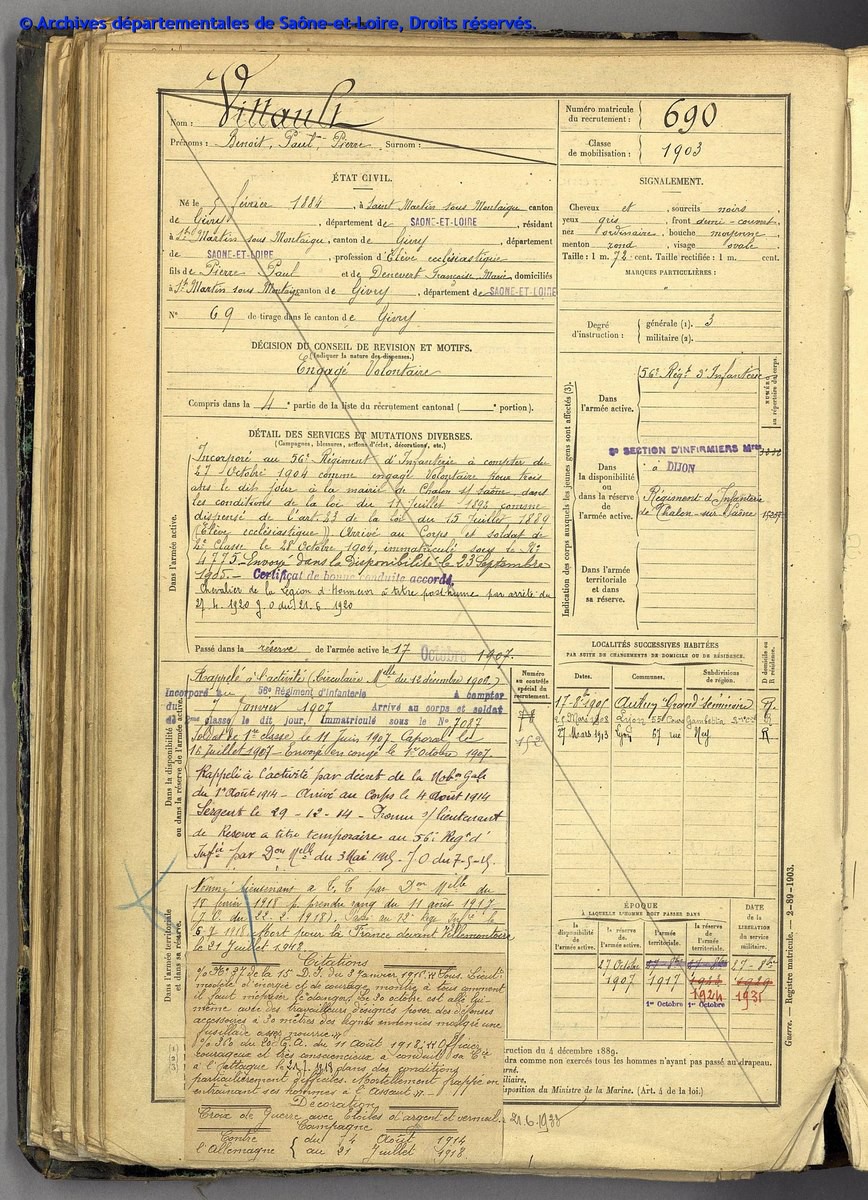 © Archives départementales de Saône-et-Loire, Droits réservés.
Nom : Villault
Prénoms : Benoit, Paul, Pierre Surnom :
Numéro matricule du recrutement : 690
Classe de mobilisation : 1903
ÉTAT CIVIL.
Né le 5 février 1884, à Saint Martin sous Montaigu canton
de Givry, département de SAONE-ET-LOIRE, résidant
à St Martin sous Montaigu, canton de Givry, département
de SAONE-ET-LOIRE, profession d'Elève ecclésiastique
fils de Pierre Paul et de Denevert Françoise Marie domiciliés
à St Martin sous Montaigu canton de Givry, département de SAONE-ET-LOIRE
N° 69 de tirage dans le canton de Givry
SIGNALEMENT.
Cheveux et sourcils noirs
yeux gris, front demi-couvert
nez ordinaire, bouche moyenne
menton rond, visage ovale
Taille : 1 m. 72 cent. Taille rectifiée : 1 m. cent.
MARQUES PARTICULIÈRES :
Degré d'instruction : générale (1). 3
militaire (2).
DÉCISION DU CONSEIL DE REVISION ET MOTIFS.
(Indiquer la nature des dispenses.)
Engagé Volontaire
Compris dans la 4e partie de la liste du recrutement cantonal ( portion).
DÉTAIL DES SERVICES ET MUTATIONS DIVERSES.
(Campagnes, blessures, actions d'éclat, décorations, etc.)
Dans l'armée active.
Incorporé au 56e Régiment d'Infanterie à compter du
27 Octobre 1904 comme engagé volontaire pour trois
ans le dit jour à la mairie de Chalon s/ Saône dans
les conditions de la loi du 11 Juillet 1892 comme
dispensé de l'art. 23 de la loi du 15 Juillet 1889
(Elève ecclésiastique). Arrivé au Corps et soldat de
2e Classe le 28 Octobre 1904, immatriculé sous le No
4775 - Envoyé dans la Disponibilité le 23 Septembre
1905. - Certificat de bonne conduite accordé.
Chevalier de la Légion d'Honneur à titre posthume par arrêté du
27. 4. 1920 J.O du 21. 6 1920
Passé dans la réserve de l'armée active le 17 Octobre 1907.
Indication des corps auxquels les jeunes gens sont affectés (3).
NUMÉRO au répertoire du corps.
Dans l'armée active.
56e Régt d'Infanterie
Dans la disponibilité ou dans la réserve de l'armée active.
8e SECTION D'INFIRMIERS Mres
à DIJON
Régiment d'Infanterie
de Chalon-sur-Saône
Dans l'armée territoriale et dans sa réserve.
Dans la disponibilité ou dans la réserve de l'armée active.
Numéro au contrôle spécial du recrutement.
Rappelé à l'activité (Circulaire Mlle du 12 décembre 1906)
Incorporé au 56e Régiment d'Infanterie A compter
du 7 Janvier 1907 Arrivé au corps et soldat
de 2ème classe le dit jour, Immatriculé sous le No 7087
Soldat de 1re classe le 11 Juin 1907 Caporal le
16 juillet 1907 - Envoyé en congé le 1er Octobre 1907.
Rappelé à l'activité par décret de la Mobon Gale
du 1er Août 1914 - Arrivé au Corps le 4 Août 1914
Sergent le 29-12-14 - Promu s/ lieutenant
de Réserve à titre temporaire au 56e Régt d'
Infie par Don Mlle du 3 Mai 1915 - J.O du 7-5-15.
LOCALITÉS SUCCESSIVES HABITÉES
PAR SUITE DE CHANGEMENTS DE DOMICILE OU DE RÉSIDENCE.
Dates. Communes. Subdivisions de région. D domicile ou R résidence.
17-8bre 1905 Autun Grand Séminaire R
Mai 1908 Lyon 55 Cours Gambetta R
27 Mars 1913 Lyon 67 rue Ney R
Dans l'armée territoriale et dans sa réserve.
Nommé lieutenant à T.T par Don Mlle du
18 février 1918 p. prendre rang du 11 août 1917
(J.O. du 22. 2 1918). Passé au 72e Régt Infie le
1918 Mort pour la France devant Villemontoire
le 21 Juillet 1918.
Citations
O/No 37 de la 15 D.I du 3 Janvier 1916 "Sous Lieut
modèle d'énergie et de courage montre à tous comment
il faut mépriser le danger. Le 30 octobre est allé lui-
même avec des travailleurs désignés poser des défenses
accessoires à 30 mètres des lignes ennemies malgré une
fusillade assez nourrie."
O/ du 20e C.A. du 11 Août 1918 : "Officier
courageux et très consciencieux a conduit sa Cie
à l'attaque le 21.7.1918 dans des conditions
particulièrement difficiles. Mortellement frappé en
entraînant ses hommes à l'assaut".
Décoration
Croix de Guerre avec Etoiles d'argent et vermeil.
Campagne
Contre l'Allemagne { du 4 Août 1914
au 21 Juillet 1918
ÉPOQUE
À LAQUELLE L'HOMME DOIT PASSER DANS
la disponibilité de l'armée active. la réserve de l'armée active. l'armée territoriale. la réserve de l'armée territoriale.
DATE de la LIBÉRATION du service militaire.
27 Octobre 27-8bre 27-8bre 27-8bre
1907 1917 1929
1er Octobre 1er Octobre
1924 1931
Guerre. — Registre matricule. — 2-89-1903.
struction du 4 décembre 1889.
dra comme non exercés tous les hommes n'ayant pas passé au drapeau.
isposition du Ministre de la Marine. (Art. 4 de la loi.)